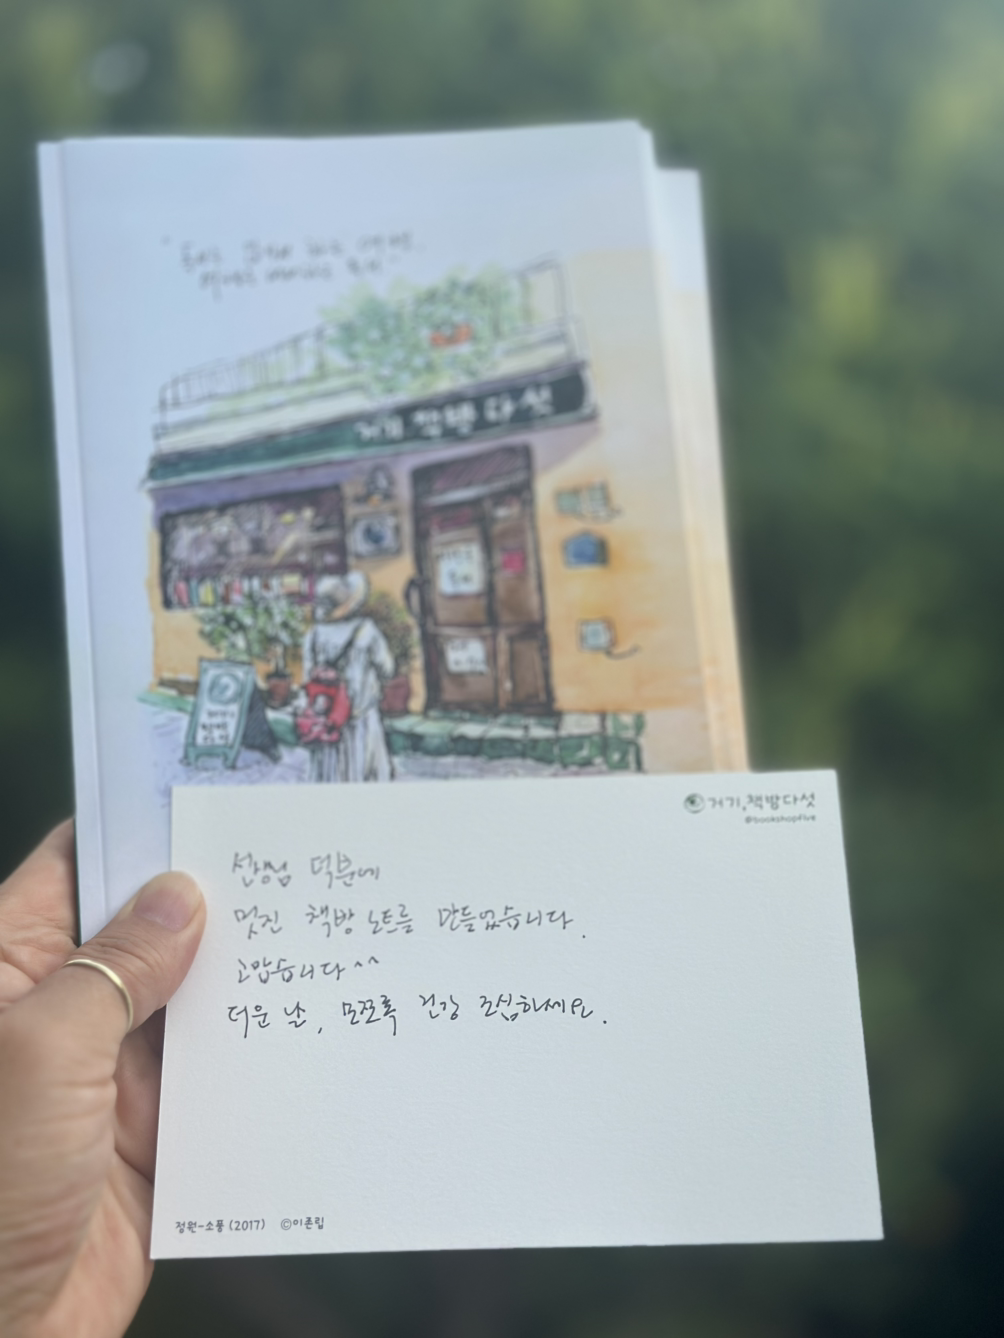 거기 책방 다섯
거기, 책방다섯
@bookshopfive
선생님 덕분에
멋진 책방 노트를 만들었습니다.
고맙습니다^^
더운 날, 모쪼록 건강 조심하세요.
정원-소풍 (2017) ©이존립